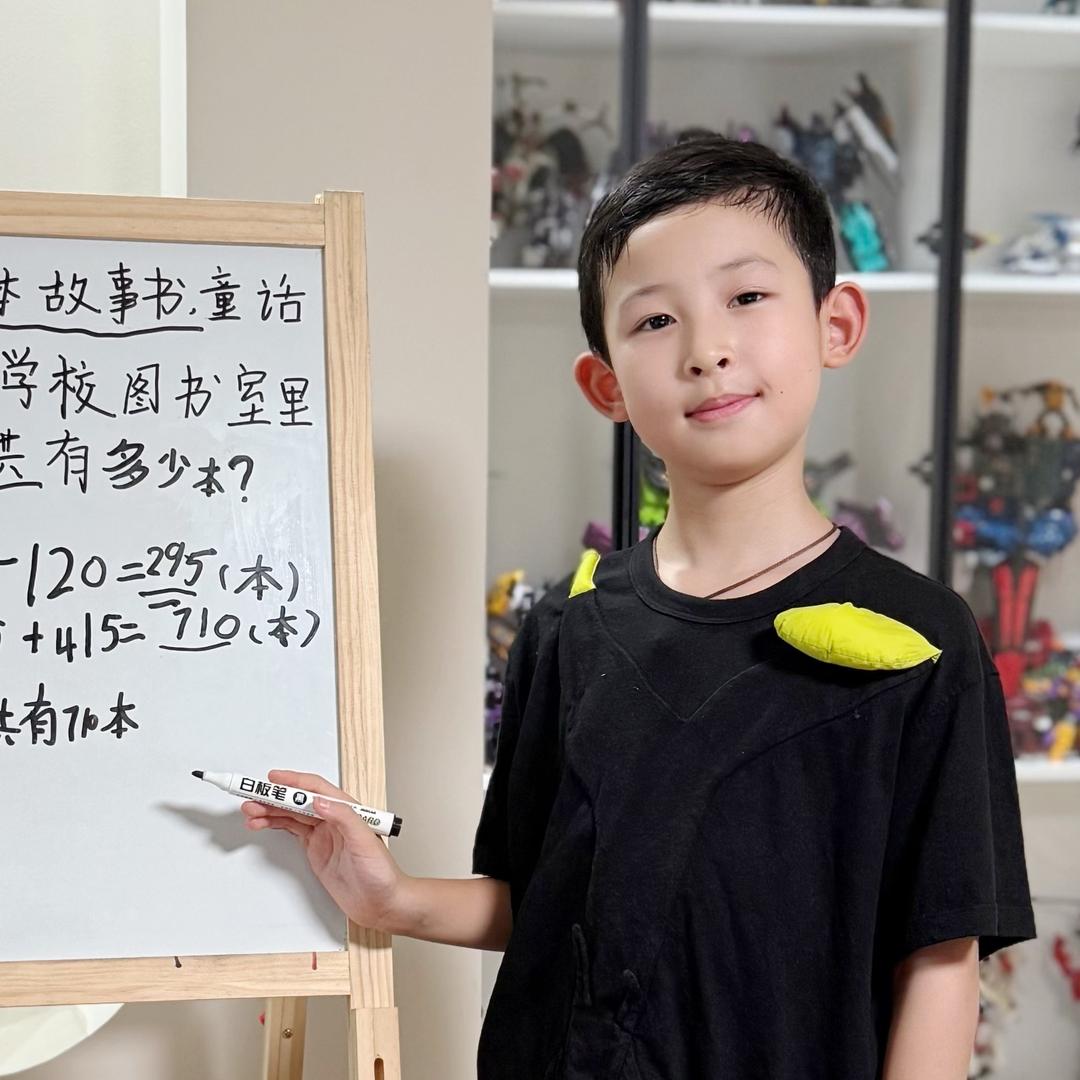 本故事书,童话
学校图书室里
共有多少本?
-120=295(本)
+415=710(本)
共有710本
白板笔 黑